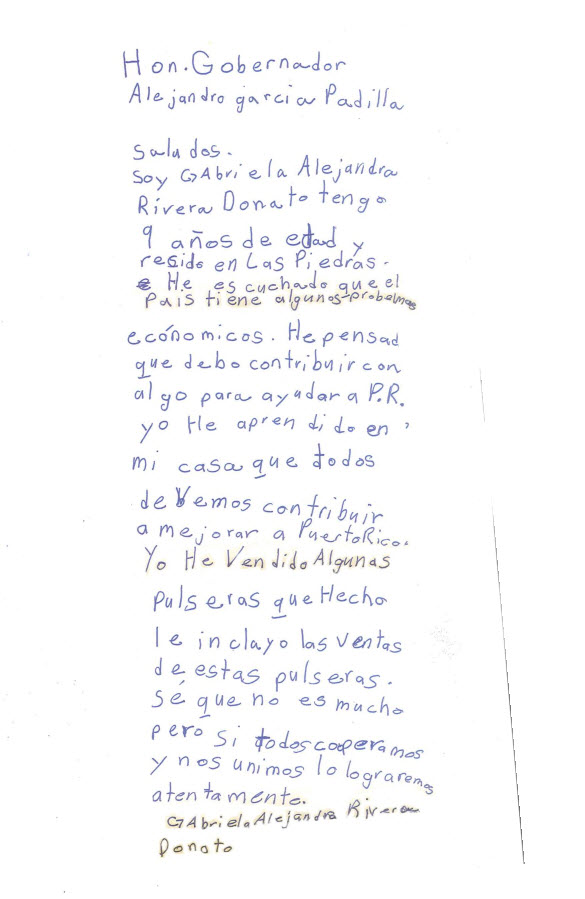 Hon. Gobernador
Alejandro garcia Padilla
Saludos.
Soy GAbriela Alejandra
Rivera Donato tengo
9 años de edad y
resido en Las Piedras.
He escuchado que el
País tiene algunos probelmas
ecónomicos. He pensad
que debo contribuir con
algo para ayudar a P.R.
yo He aprendido en
mi casa que todos
deVemos contribuir
a mejorar a Puerto Rico.
Yo He Vendido Algunas
pulseras que Hecho
le inclayo las ventas
de estas pulseras.
Sé que no es mucho
pero si todos coperamos
y nos unimos lo lograremos
atentamente.
GAbriela Alejandra Rivera
Donato